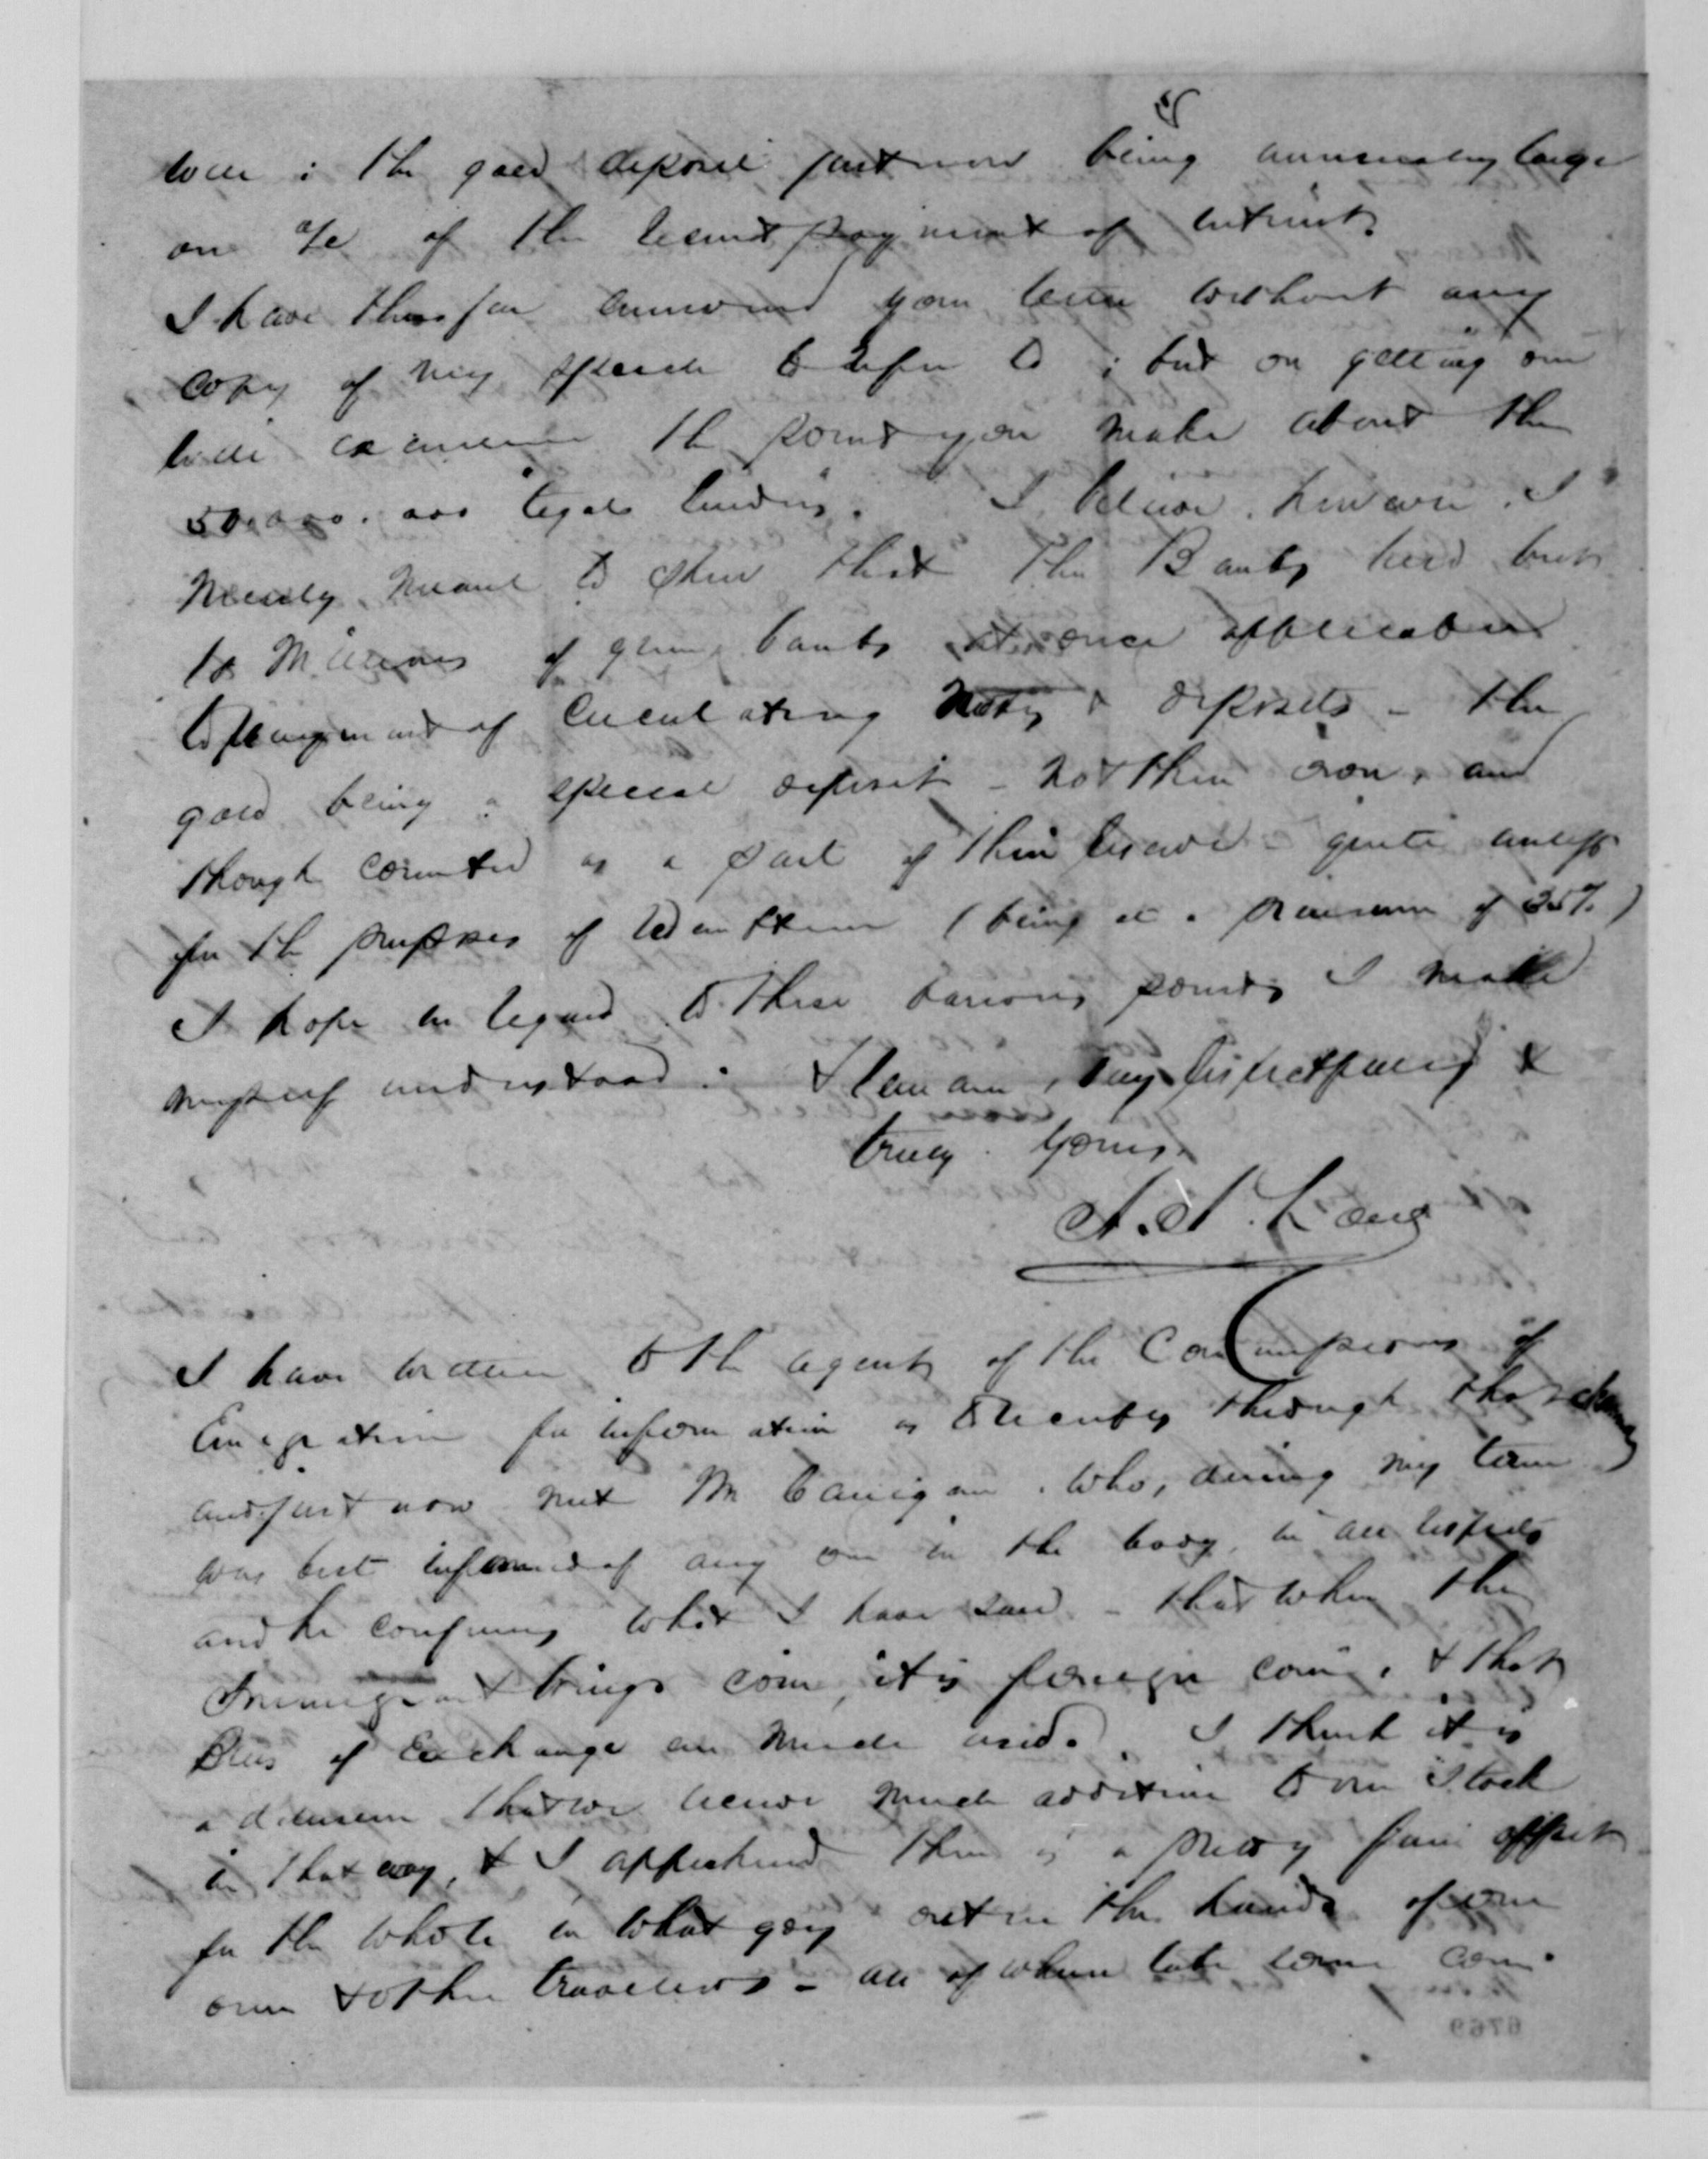 well; the gold deposit just now being unusually large
on a/c of the recent payment of interest.
I have thus far answered your letter without any
copy of my speech to refer to; but on getting one
will examine the point you make about the
50.000.000 legal tenders. I believe, however, I
merely meant to show that the Banks held but
Millions of at once applicable
to payment of circulating notes & deposits - the
gold being a special deposit - not their own, and
though counted as a part of their reserve - quite useless
for the purposes of redemption (being at a premium of 35%)
I hope in regard to these various points I make
myself understood: & remain, very respectfully &
truly yours.
I have written to the agents of the Commissioners of
Emigration for information as to recently through
and just now met Mr Carrigan. who, during my term
was best informed of any one in the body, in all respects
and he confirms what I have said - that when the
Immigrant brings coin, it is foreign coin, & that
Bills of Exchange are much used. I think it is
a delusion that we receive much addition to our Stock
in that way, & I apprehend there is a pretty fair offset
for the whole in what goes out in the hands of our
own & other travellers - all of whom take some coin.
6769